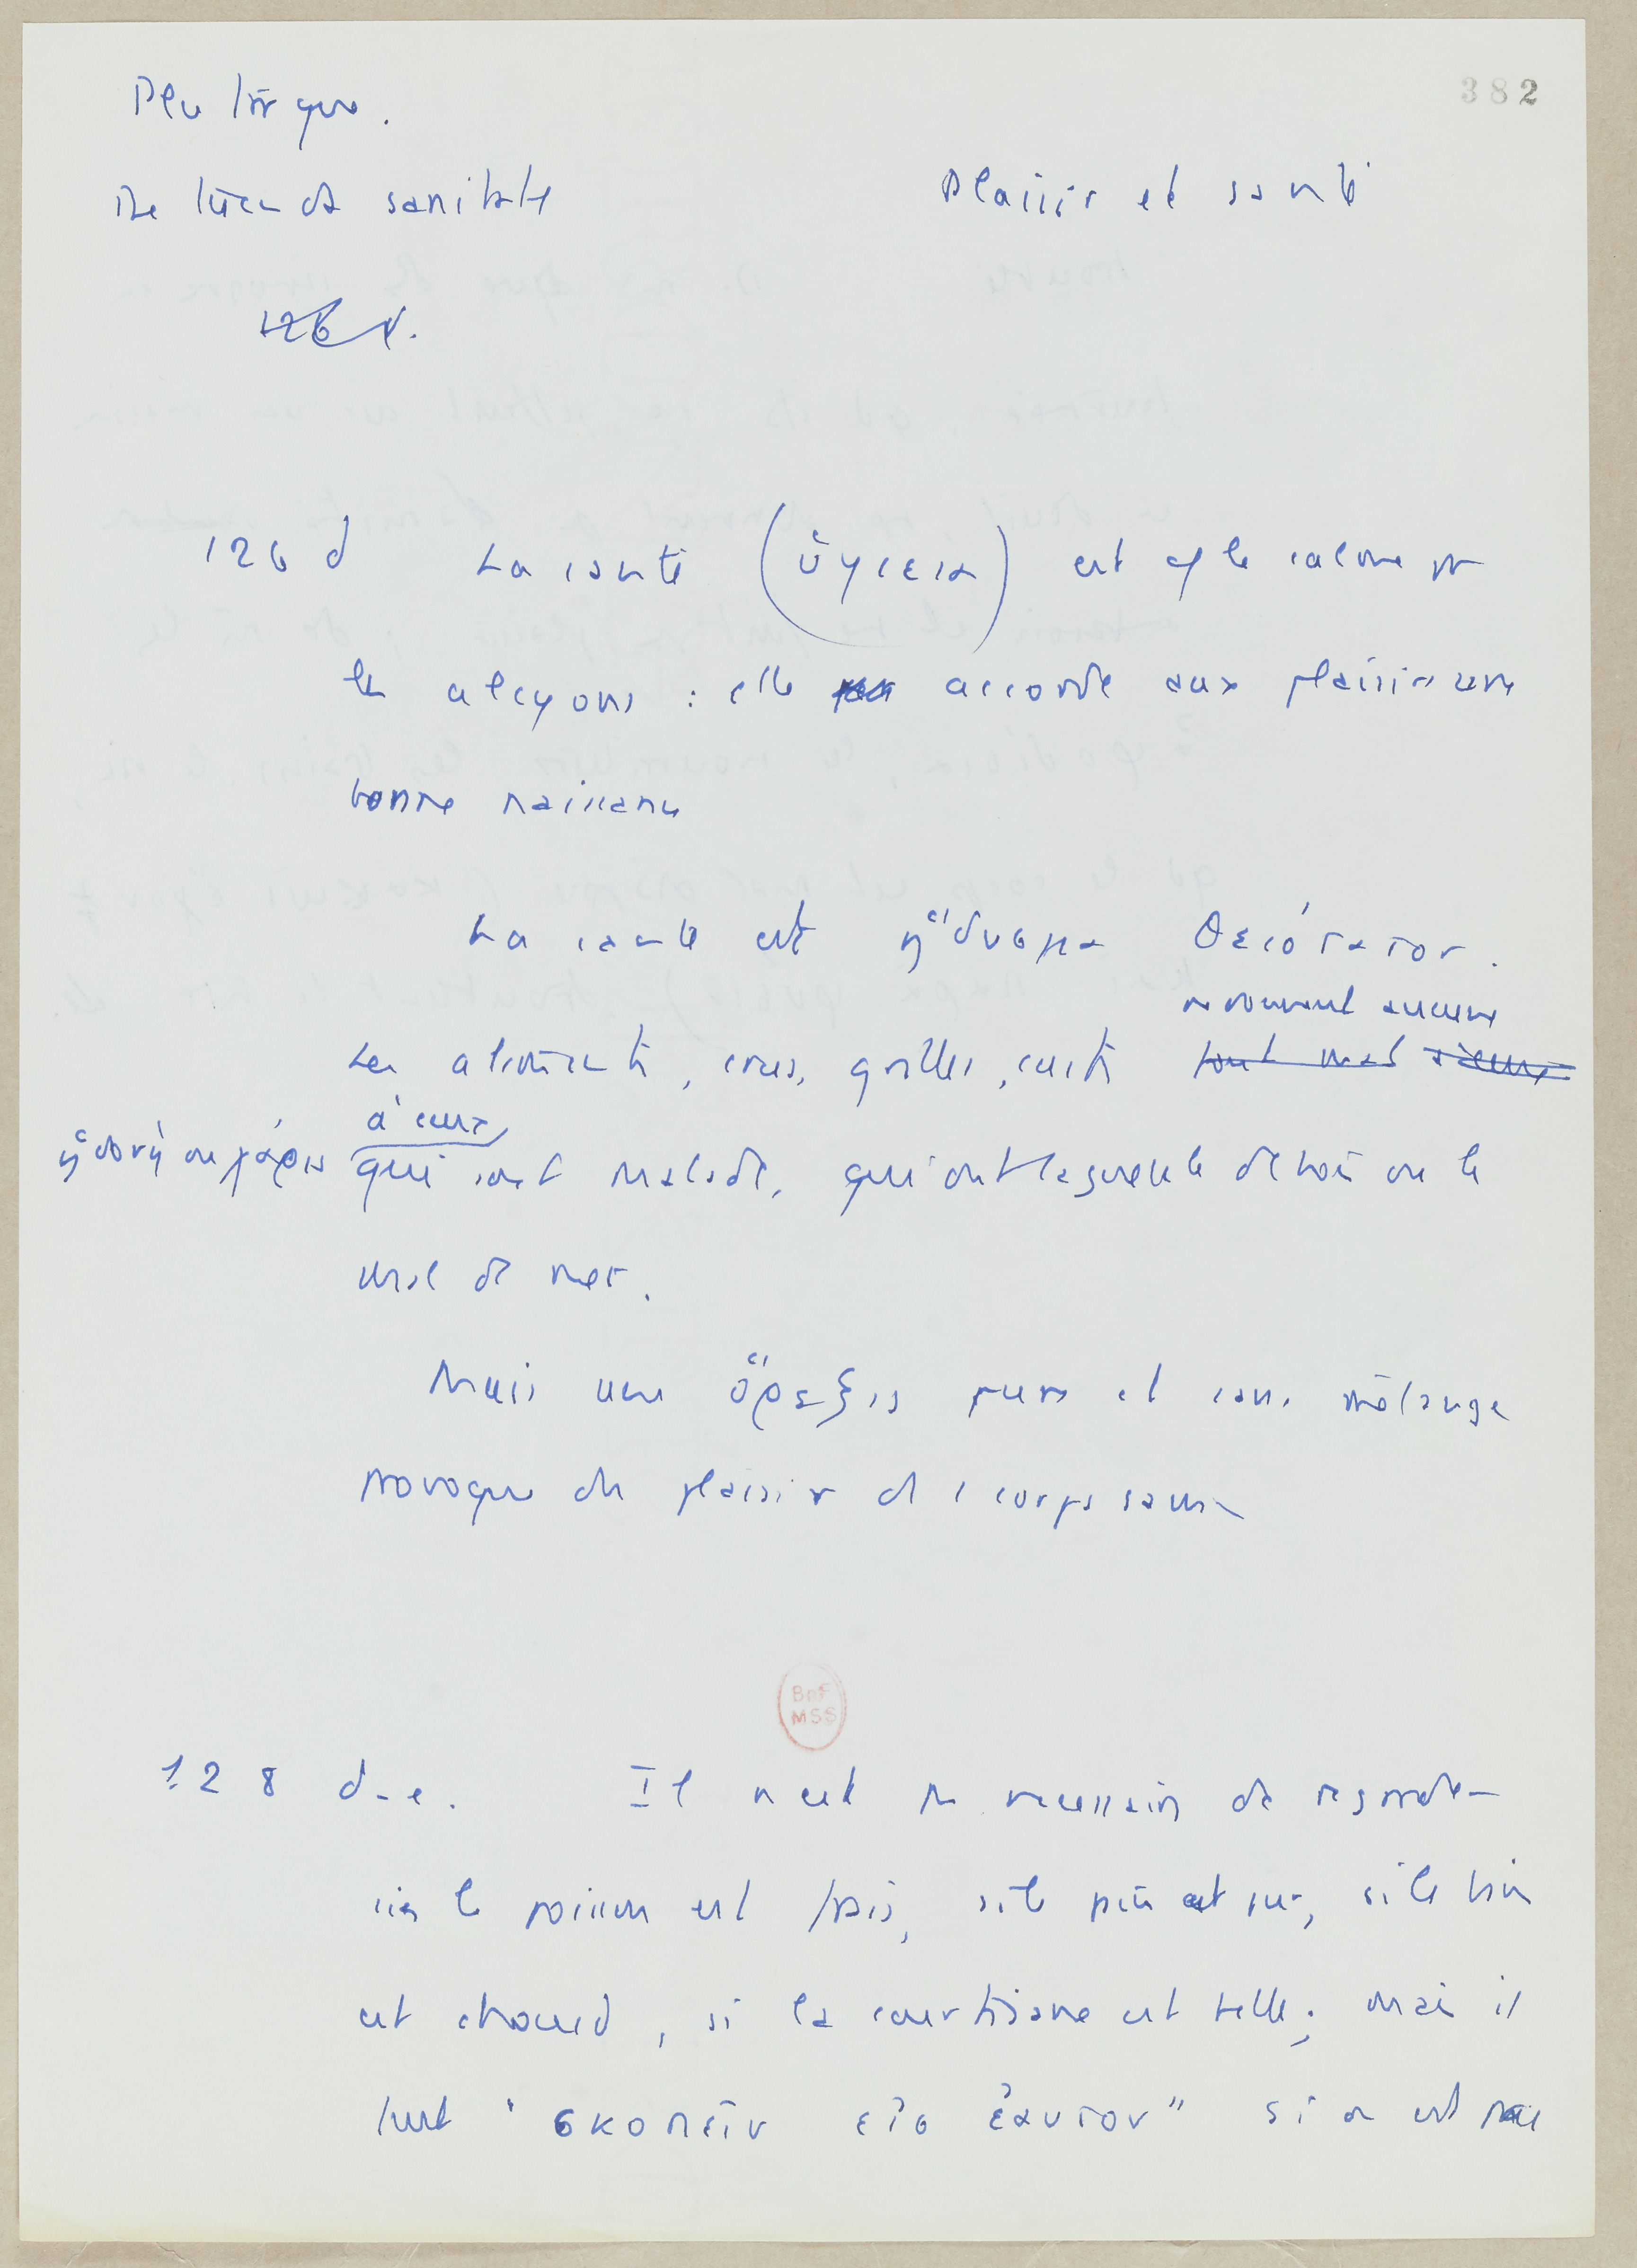 382
Plutarque.
De tuenda sanitate
Plaisir et santé
126 d.
126 d La santé (ὑγιεια) est c/ le calme pr
les alcyons : elle accorde aux plaisirs une
bonne naissance
La santé est ἥδυσμα θειότατον.
ne donnent aucune
Les aliments, crus, grillés, cuits
à ceux
ἡδονὴ ou χάρις qui sont malades, qui ont la gueule de bois ou le
mal de mer.
Mais une ὄρεξις pure et sans mélange
provoque du plaisir ds 1 corps sain
BnF
MSS
128 d-e. Il n'est pas nécessaire de regarder
si le poisson est frais, si le pain est pur, si le bain
est chaud, si la courtisane est belle; mais il
faut "σκοπεῖν εἰς ἑαυτον" si on est pas